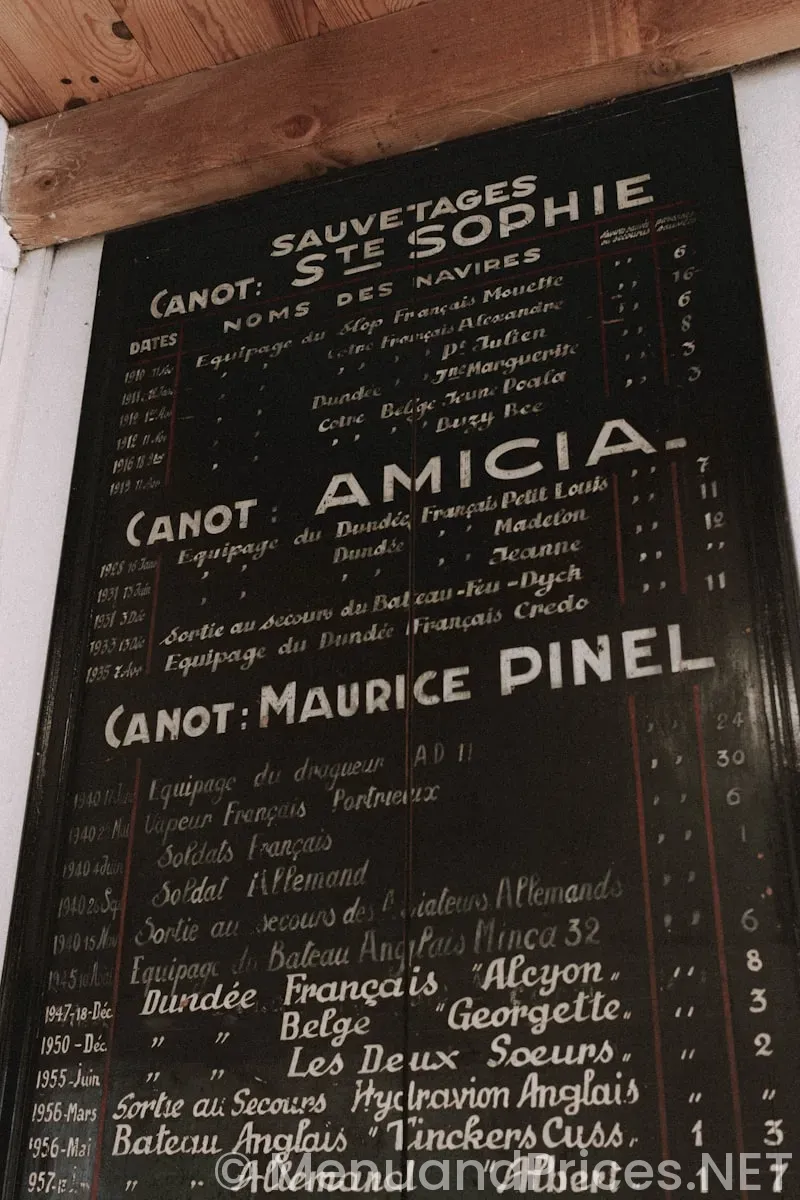 SAUVETAGES
CANOT: STE SOPHIE
DATES NOMS DES NAVIRES
1910 Equipage du Slop Français Mouette ,, 6
1911 ,, ,, Cotre Français Alexandre ,, 16
1912 ,, ,, ,, ,, Pt Julien ,, 6
1912 ,, ,, Dundée ,, ,, Jne Marguerite ,, 8
1916 ,, ,, Cotre Belge Jeune Poala ,, 3
1919 ,, ,, ,, ,, Buzy Bee ,, 3
CANOT: AMICIA-
1928 16 Equipage du Dundée Français Petit Louis ,, 7
1931 13 Juin ,, ,, Dundée ,, ,, Madelon ,, 11
1931 3 Déc ,, ,, ,, ,, Jeanne ,, 12
1933 13 Déc Sortie au secours du Bateau-Feu-Dyck ,, ,,
1935 7 Equipage du Dundée Français Credo ,, 11
CANOT: MAURICE PINEL
1940 Equipage du dragueur AD 11 ,, 24
1940 Mai Vapeur Français Portrieux ,, 30
1940 4 Juin Soldats Français ,, 6
1940 Sep Soldat Allemand ,, 1
1940 15 Nov Sortie au secours des Aviateurs Allemands ,,
1945 Equipage du Bateau Anglais Minca 32 6
1947-18-Déc. Dundée Français "Alcyon" ,, 8
1950-Déc. ,, ,, Belge "Georgette" ,, 3
1955-Juin ,, ,, Les Deux Sœurs" ,, 2
1956-Mars Sortie au Secours Hydravion Anglais ,, ,,
1956-Mai Bateau Anglais "Tinckers Cuss" 1 3
957- ,, ,, Allemand "Albert 1 7
©Menuandprices.NET